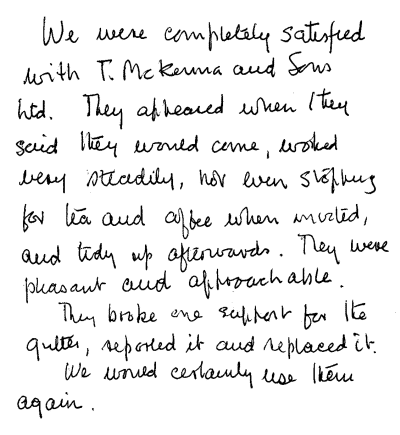 We were completely satisfied
with T. McKenna and Sons
Ltd. They appeared when they
said they would come, worked
very steadily, not even stopping
for tea and coffee when invited,
and tidy up afterwards. They were
pleasant and approachable.
They broke one support for the
gutter, reported it and replaced it.
We would certainly use them
again.